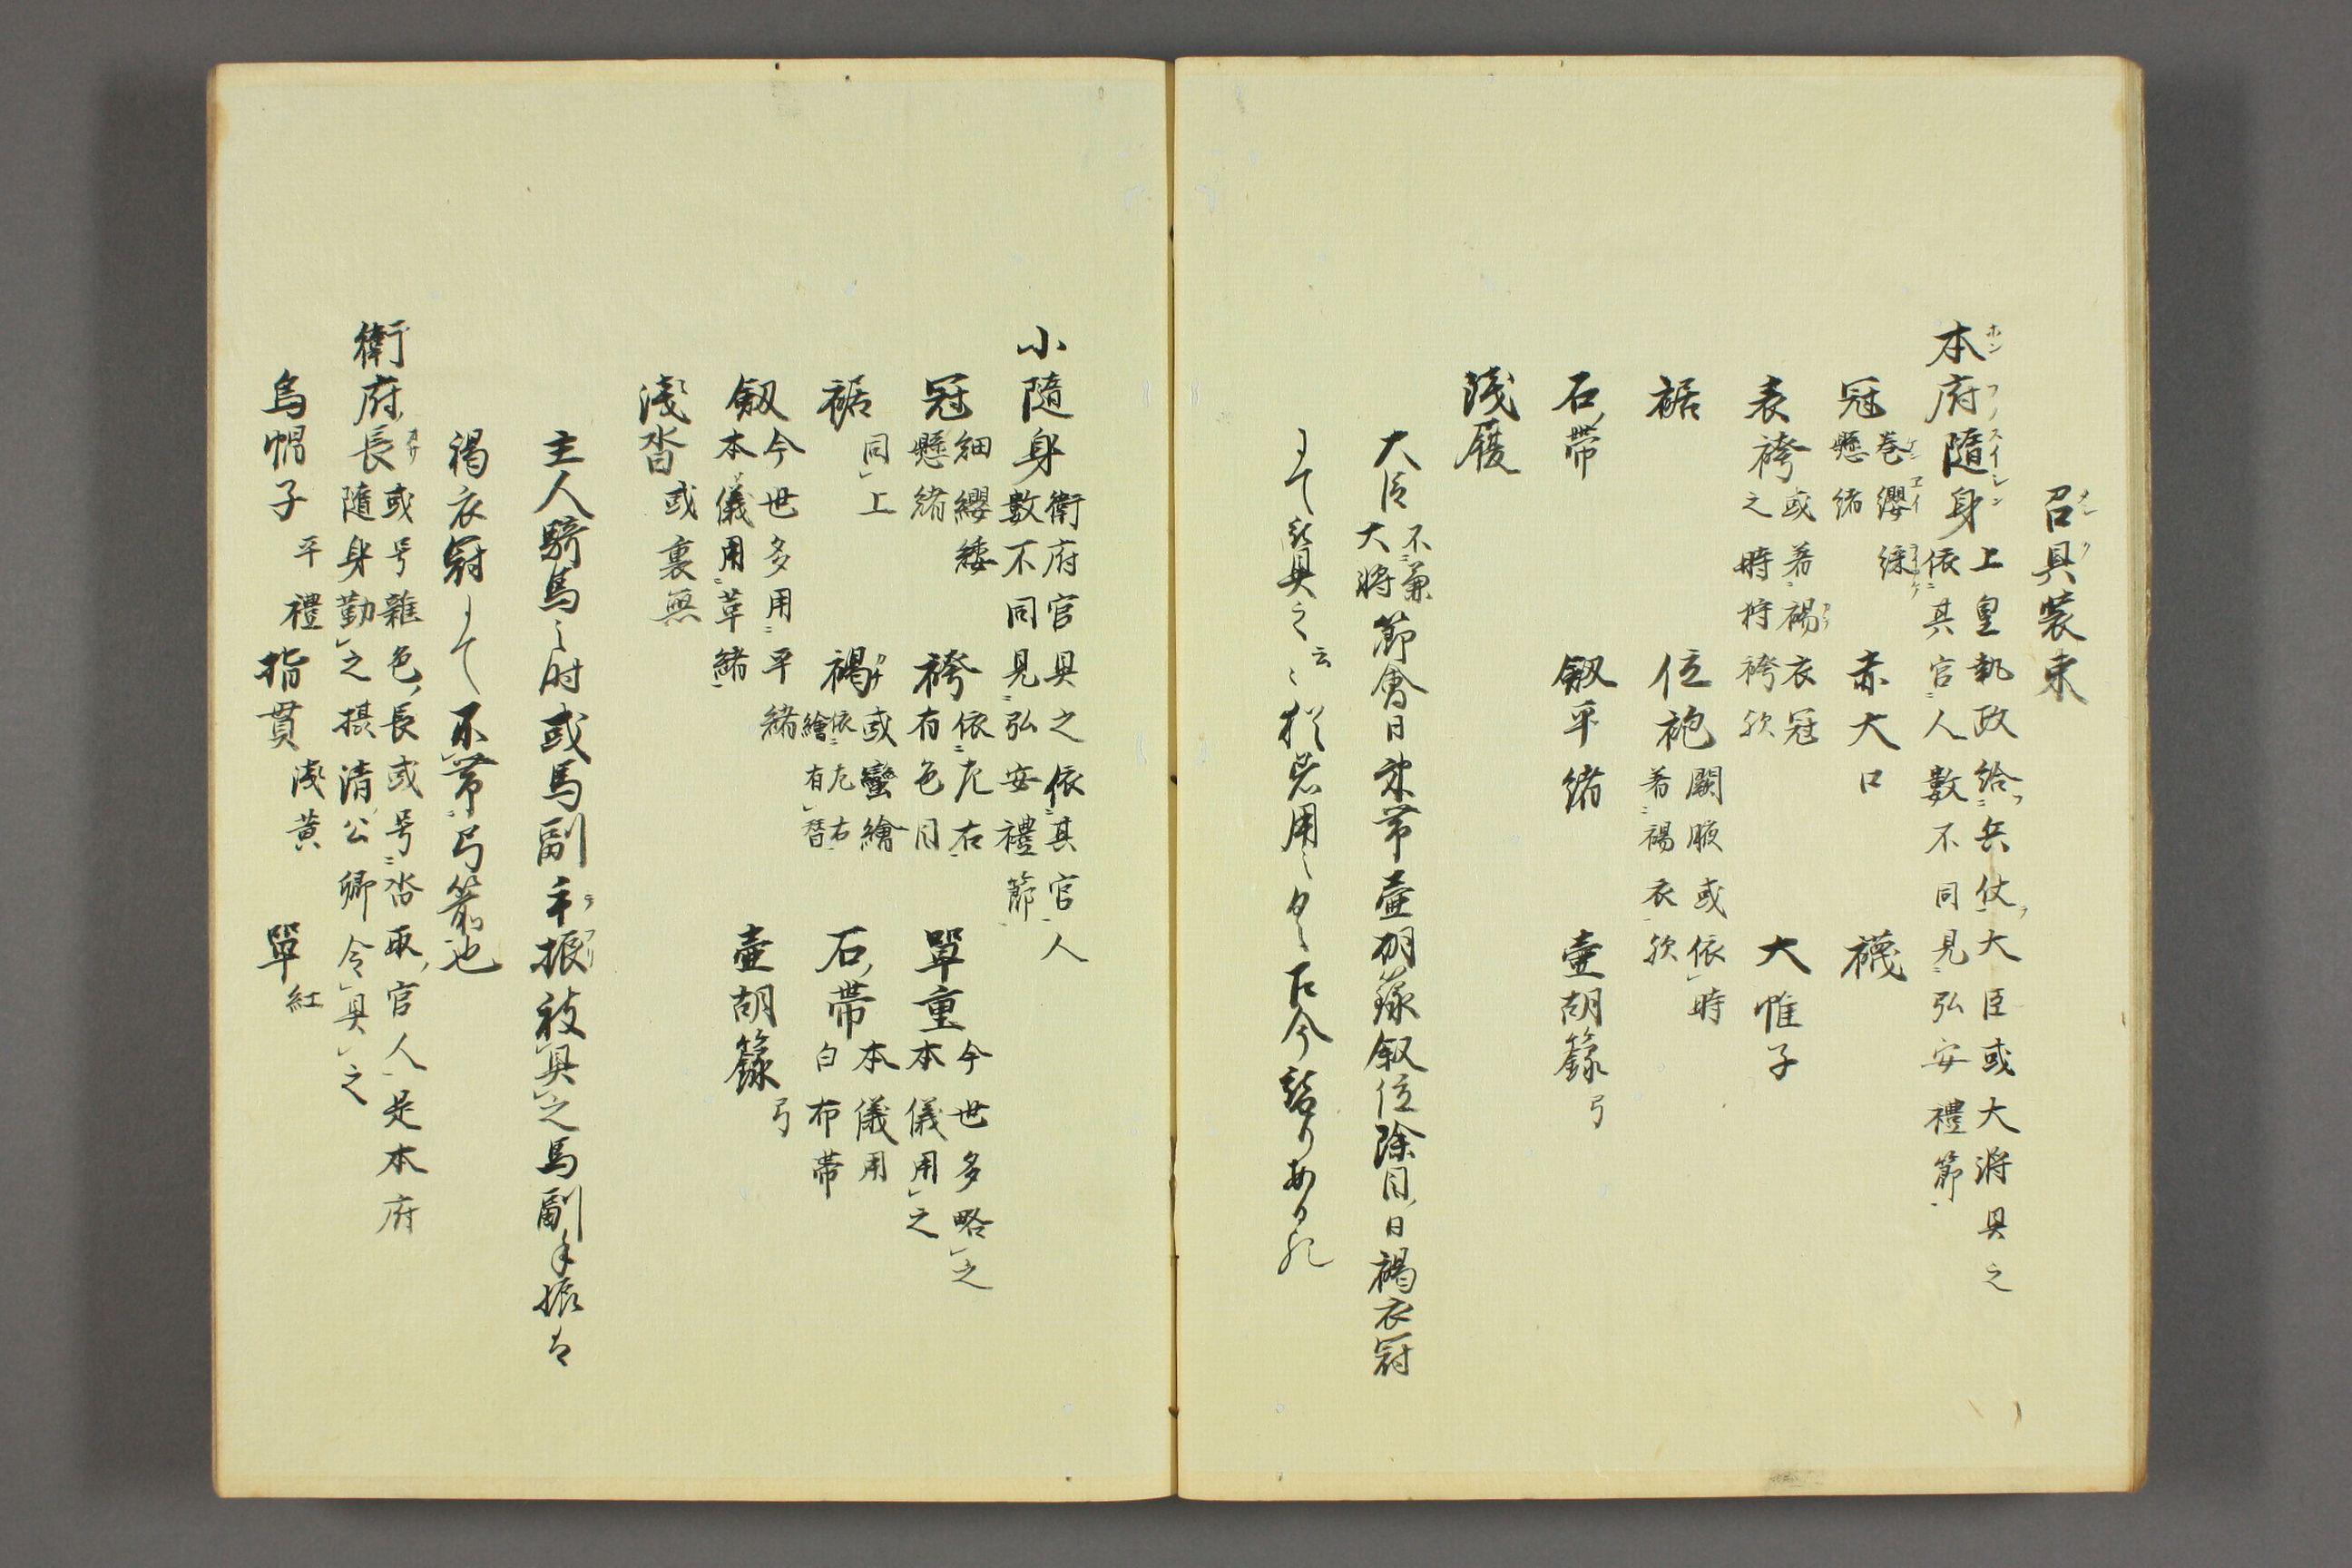 召具装束
本府隨身上皇執政給兵仗大臣或大將具之
依其官人數不同見弘安禮節
冠巻纓緌懸緒 赤大口 襪
表袴或着褐衣冠之時狩袴欤 大帷子
裾 位袍闕腋或依時着褐衣欤
石帯 釼平緒 壷胡籙弓
浅履
大臣不兼大將節會日来帯壷胡籙叙位除目日褐衣冠
にて
小隨身衛府官具之依其官人
數不同見弘安禮節
冠細纓緌懸緒 袴依左右有色目 單重今世多略之本儀用之
裾同上 褐或蠻繪依左右繪有替 石帯本儀用白布帯
釼今世多用平緒本儀用革緒 壷胡籙弓
浅沓或裏無
主人騎馬之時或馬副手振被具之馬副手振は
褐衣冠にて不帯弓箭也
衛府長或号雜色長或号沓取官人是本府
隨身勤之摂清公卿令具之
烏帽子平禮 指貫浅黄 單紅